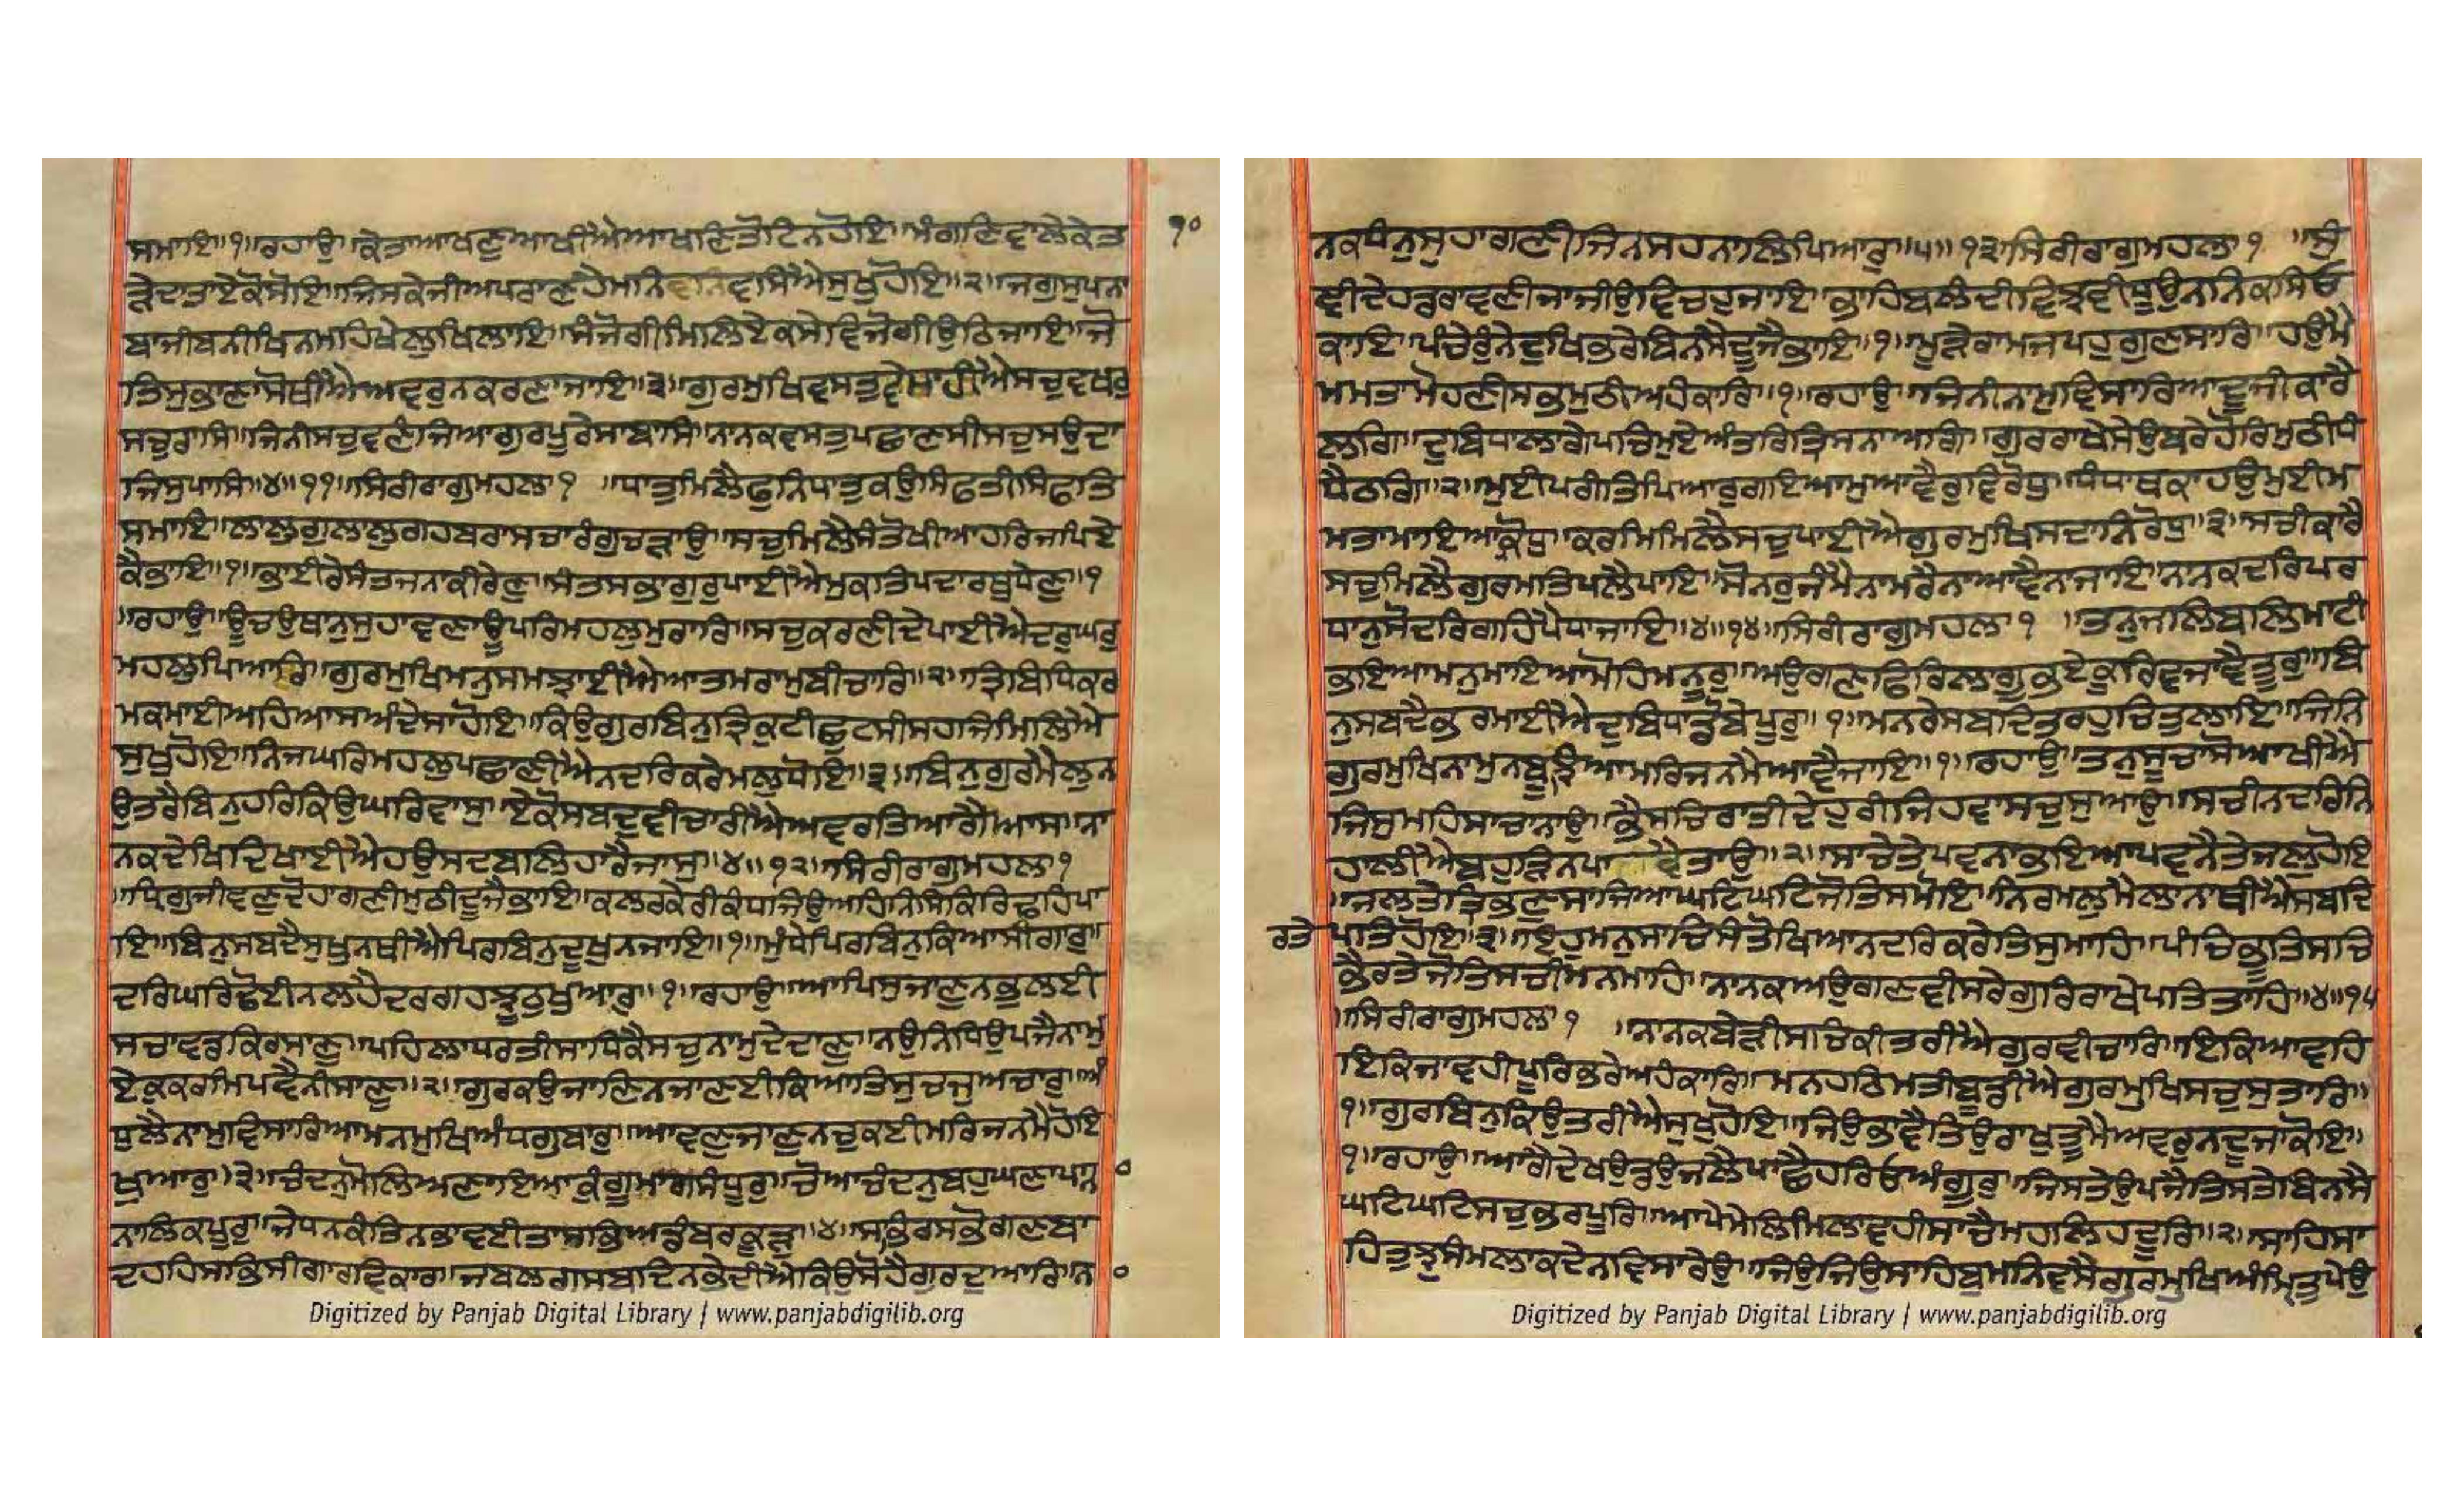 ਸਮਾਇ॥੧॥ਰਹਾਉ॥ਕੇਤਾਆਖਣੁਆਖੀਐਆਖਣਿਤੋਟਿਨਹੋਇ॥ਮੰਗਣਿਵਾਲੇਕੇਤ
੧੦
ੜੇਦਾਤਾਏਕੋਸੋਇ॥ਜਿਸਕੇਜੀਅਪਰਾਣਹੈਮਨਿਵਸਿਐਸੁਖੁਹੋਇ॥੨॥ਜਗੁਸੁਪਨਾ
ਬਾਜੀਬਨੀਖਿਨਮਹਿਖੇਲੁਖਿਲਾਇ॥ਸੰਜੋਗੀਮਿਲਿਏਕਸੇਵਿਜੋਗੀਉਠਿਜਾਇ॥ਜੋ
ਤਿਸੁਭਾਣਾਸੋਥੀਐਅਵਰੁਨਕਰਣਾਜਾਇ॥੩॥ਗੁਰਮੁਖਿਵਸਤੁਵੇਸਾਹੀਐਸਚੁਵਖਰੁ
ਸਚੁਰਾਸਿ॥ਜਿਨੀਸਚੁਵਣੰਜਿਆਗੁਰਪੂਰੇਸਾਬਾਸਿ॥ਨਾਨਕਵਸਤੁਪਛਾਣਸੀਸਚੁਸਉਦਾ
ਜਿਸੁਪਾਸਿ॥੪॥੧੧॥ਸਿਰੀਰਾਗੁਮਹਲਾ੧ ॥ਧਾਤੁਮਿਲੈਫੁਨਿਧਾਤੁਕਉਸਿਫਤੀਸਿਫਤਿ
ਸਮਾਇ॥ਲਾਲੁਗੁਲਾਲੁਗਹਬਰਾਸਚਾਰੰਗੁਚੜਾਉ॥ਸਚੁਮਿਲੈਸੰਤੋਖੀਆਹਰਿਜਪਿਏ
ਕੈਭਾਇ॥੧॥ਭਾਈਰੇਸੰਤਜਨਾਕੀਰੇਣੁ॥ਸੰਤਸਭਾਗੁਰੁਪਾਈਐਮੁਕਤਿਪਦਾਰਥੁਧੇਣੁ॥੧
॥ਰਹਾਉ॥ਊਚਉਥਾਨੁਸੁਹਾਵਣਾਊਪਰਿਮਹਲੁਮੁਰਾਰਿ॥ਸਚੁਕਰਣੀਦੇਪਾਈਐਦਰੁਘਰੁ
ਮਹਲੁਪਿਆਰਿ॥ਗੁਰਮੁਖਿਮਨੁਸਮਝਾਈਐਆਤਮਰਾਮੁਬੀਚਾਰਿ॥੨॥ਤ੍ਰਿਬਿਧਿਕਰ
ਮਕਮਾਈਅਹਿਆਸਅੰਦੇਸਾਹੋਇ॥ਕਿਉਗੁਰਬਿਨੁਤ੍ਰਿਕੁਟੀਛੁਟਸੀਸਹਜਿਮਿਲਿਐ
ਸੁਖੁਹੋਇ॥ਨਿਜਘਰਿਮਹਲੁਪਛਾਣੀਐਨਦਰਿਕਰੇਮਲੁਧੋਇ॥੩॥ਬਿਨੁਗੁਰਮੈਲੁਨ
ਉਤਰੈਬਿਨੁਹਰਿਕਿਉਘਰਿਵਾਸੁ॥ਏਕੋਸਬਦੁਵੀਚਾਰੀਐਅਵਰਤਿਆਗੈਆਸ॥ਨਾ
ਨਕਦੇਖਿਦਿਖਾਈਐਹਉਸਦਬਲਿਹਾਰੈਜਾਸੁ॥੪॥੧੨॥ਸਿਰੀਰਾਗੁਮਹਲਾ੧
॥ਧ੍ਰਿਗੁਜੀਵਣੁਦੋਹਾਗਣੀਮੁਠੀਦੂਜੈਭਾਇ॥ਕਲਰਕੇਰੀਕੰਧਜਿਉਅਹਿਨਿਸਿਕਿਰਿਢਹਿਪਾ
ਇ॥ਬਿਨੁਸਬਦੈਸੁਖੁਨਥੀਐਪਿਰਬਿਨੁਦੂਖੁਨਜਾਇ॥੧॥ਮੁੰਧੇਪਿਰਬਿਨੁਕਿਆਸੀਗਾਰੁ॥
ਦਰਿਘਰਿਢੋਈਨਲਹੈਦਰਗਹਝੂਠੁਖੁਆਰੁ॥੧॥ਰਹਾਉ॥ਆਪਿਸੁਜਾਣੁਨਭੁਲਈ
ਸਚਾਵਡਕਿਰਸਾਣੁ॥ਪਹਿਲਾਧਰਤੀਸਾਧਿਕੈਸਚੁਨਾਮੁਦੇਦਾਣੁ॥ਨਉਨਿਧਿਉਪਜੈਨਾਮੁ
ਏਕੁਕਰਮਿਪਵੈਨੀਸਾਣੁ॥੨॥ਗੁਰਕਉਜਾਣਿਨਜਾਣਈਕਿਆਤਿਸੁਚਜੁਅਚਾਰੁ॥ਅੰ
ਧੁਲੈਨਾਮੁਵਿਸਾਰਿਆਮਨਮੁਖਿਅੰਧਗੁਬਾਰੁ॥ਆਵਣੁਜਾਣੁਨਚੁਕਈਮਰਿਜਨਮੈਹੋਇ
ਖੁਆਰੁ॥੩॥ਚੰਦਨੁਮੋਲਿਅਣਾਇਆਕੁੰਗੂਮਾਂਗਸੰਧੂਰੁ॥ਚੋਆਚੰਦਨੁਬਹੁਘਣਾਪਾਨਾ
ਨਾਲਿਕਪੂਰੁ॥ਜੇਧਨਕੰਤਿਨਭਾਵਈਤਾਸਭਿਅਡੰਬਰਕੂੜੁ॥੪॥ਸਭਿਰਸਭੋਗਣਬਾ
ਦਹਹਿਸਭਿਸੀਗਾਰਵਿਕਾਰ॥ਜਬਲਗੁਸਬਦਿਨਭੇਦੀਐਕਿਉਸੋਹੈਗੁਰਦੁਆਰਿ॥ਨਾ
Digitized by Panjab Digital Library | www.panjabdigilib.org
ਨਕਧੰਨੁਸੁਹਾਗਣੀਜਿਨਸਹਨਾਲਿਪਿਆਰੁ॥੫॥੧੩॥ਸਿਰੀਰਾਗੁਮਹਲਾ੧ ॥ਸੁੰ
ਞੀਦੇਹਡਰਾਵਣੀਜਾਜੀਉਵਿਚਹੁਜਾਇ॥ਭਾਹਿਬਲੰਦੀਵਿਝਵੀਧੂਉਨਨਿਕਸਿਓ
ਕਾਇ॥ਪੰਚੇਰੁੰਨੇਦੁਖਿਭਰੇਬਿਨਸੇਦੂਜੈਭਾਇ॥੧॥ਮੂੜੇਰਾਮਜਪਹੁਗੁਣਸਾਰਿ॥ਹਉਮੈ
ਮਮਤਾਮੋਹਣੀਸਭਮੁਠੀਅਹੰਕਾਰਿ॥੧॥ਰਹਾਉ॥ਜਿਨੀਨਾਮੁਵਿਸਾਰਿਆਦੂਜੀਕਾਰੈ
ਲਗਿ॥ਦੁਬਿਧਾਲਾਗੇਪਚਿਮੁਏਅੰਤਰਿਤ੍ਰਿਸਨਾਅਗਿ॥ਗੁਰਰਾਖੇਸੇਉਬਰੇਹੋਰਿਮੁਠੀਧੰ
ਧੈਠਗਿ॥੨॥ਮੁਈਪਰੀਤਿਪਿਆਰੁਗਇਆਮੁਆਵੈਰੁਵਿਰੋਧੁ॥ਧੰਧਾਥਕਾਹਉਮੁਈਮ
ਮਤਾਮਾਇਆਕ੍ਰੋਧੁ॥ਕਰਮਿਮਿਲੈਸਚੁਪਾਈਐਗੁਰਮੁਖਿਸਦਾਨਿਰੋਧੁ॥੩॥ਸਚੀਕਾਰੈ
ਸਚੁਮਿਲੈਗੁਰਮਤਿਪਲੈਪਾਇ॥ਸੋਨਰੁਜੰਮੈਨਾਮਰੈਨਾਆਵੈਨਾਜਾਇ॥ਨਾਨਕਦਰਿਪਰ
ਧਾਨੁਸੋਦਰਿਗਹਿਪੈਧਾਜਾਇ॥੪॥੧੪॥ਸਿਰੀਰਾਗੁਮਹਲਾ੧ ॥ਤਨੁਜਲਿਬਲਿਮਾਟੀ
ਭਇਆਮਨੁਮਾਇਆਮੋਹਿਮਨੂਰੁ॥ਅਉਗਣਫਿਰਿਲਾਗੂਭਏਕੂਰਿਵਜਾਵੈਤੂਰੁ॥ਬਿ
ਨੁਸਬਦੈਭਰਮਾਈਐਦੁਬਿਧਾਡੋਬੇਪੂਰੁ॥੧॥ਮਨਰੇਸਬਦਿਤਰਹੁਚਿਤੁਲਾਇ॥ਜਿਨਿ
ਗੁਰਮੁਖਿਨਾਮੁਨਬੂਝਿਆਮਰਿਜਨਮੈਆਵੈਜਾਇ॥੧॥ਰਹਾਉ॥ਤਨੁਸੂਚਾਸੋਆਖੀਐ
ਜਿਸੁਮਹਿਸਾਚਾਨਾਉ॥ਭੈਸਚਿਰਾਤੀਦੇਹੁਰੀਜਿਹਵਾਸਚੁਸੁਆਉ॥ਸਚੀਨਦਰਿਨਿ
ਹਾਲੀਐਬਹੁੜਿਨਪਾਵੈਤਾਉ॥੨॥ਸਾਚੇਤੇਪਵਨਾਭਇਆਪਵਨੈਤੇਜਲੁਹੋਇ
॥ਜਲਤੇਤ੍ਰਿਭਵਣੁਸਾਜਿਆਘਟਿਘਟਿਜੋਤਿਸਮੋਇ॥ਨਿਰਮਲੁਮੈਲਾਨਾਥੀਐਸਬਦਿ
ਰਤੇ ਪਤਿਹੋਇ॥੩॥ਇਹੁਮਨੁਸਾਚਿਸੰਤੋਖਿਆਨਦਰਿਕਰੇਤਿਸੁਮਾਹਿ॥ਪੰਚਭੂਤਸਚਿ
ਭੈਰਤੇਜੋਤਿਸਚੀਮਨਮਾਹਿ॥ਨਾਨਕਅਉਗਣਵੀਸਰੇਗੁਰਿਰਾਖੇਪਤਿਤਾਹਿ॥੪॥੧੫
॥ਸਿਰੀਰਾਗੁਮਹਲਾ੧ ॥ਨਾਨਕਬੇੜੀਸਚਕੀਤਰੀਐਗੁਰਵੀਚਾਰਿ॥ਇਕਿਆਵਹਿ
ਇਕਿਜਾਵਹੀਪੂਰਿਭਰੇਅਹੰਕਾਰਿ॥ਮਨਹਠਿਮਤੀਬੂਡੀਐਗੁਰਮੁਖਿਸਚੁਸੁਤਾਰਿ॥
੧॥ਗੁਰਬਿਨੁਕਿਉਤਰੀਐਸੁਖੁਹੋਇ॥ਜਿਉਭਾਵੈਤਿਉਰਾਖੁਤੂਮੈਅਵਰੁਨਦੂਜਾਕੋਇ॥
੧॥ਰਹਾਉ॥ਆਗੈਦੇਖਉਡਉਜਲੈਪਾਛੈਹਰਿਓਅੰਗੂਰੁ॥ਜਿਸਤੇਉਪਜੈਤਿਸਤੇਬਿਨਸੈ
ਘਟਿਘਟਿਸਚੁਭਰਪੂਰਿ॥ਆਪੇਮੇਲਿਮਿਲਾਵਹੀਸਾਚੈਮਹਲਿਹਦੂਰਿ॥੨॥ਸਾਹਿਸਾ
ਹਿਤੁਝੁਸੰਮਲਾਕਦੇਨਵਿਸਾਰੇਉ॥ਜਿਉਜਿਉਸਾਹਿਬੁਮਨਿਵਸੈਗੁਰਮੁਖਿਅੰਮ੍ਰਿਤੁਪੇਉ
Digitized by Panjab Digital Library | www.panjabdigilib.org